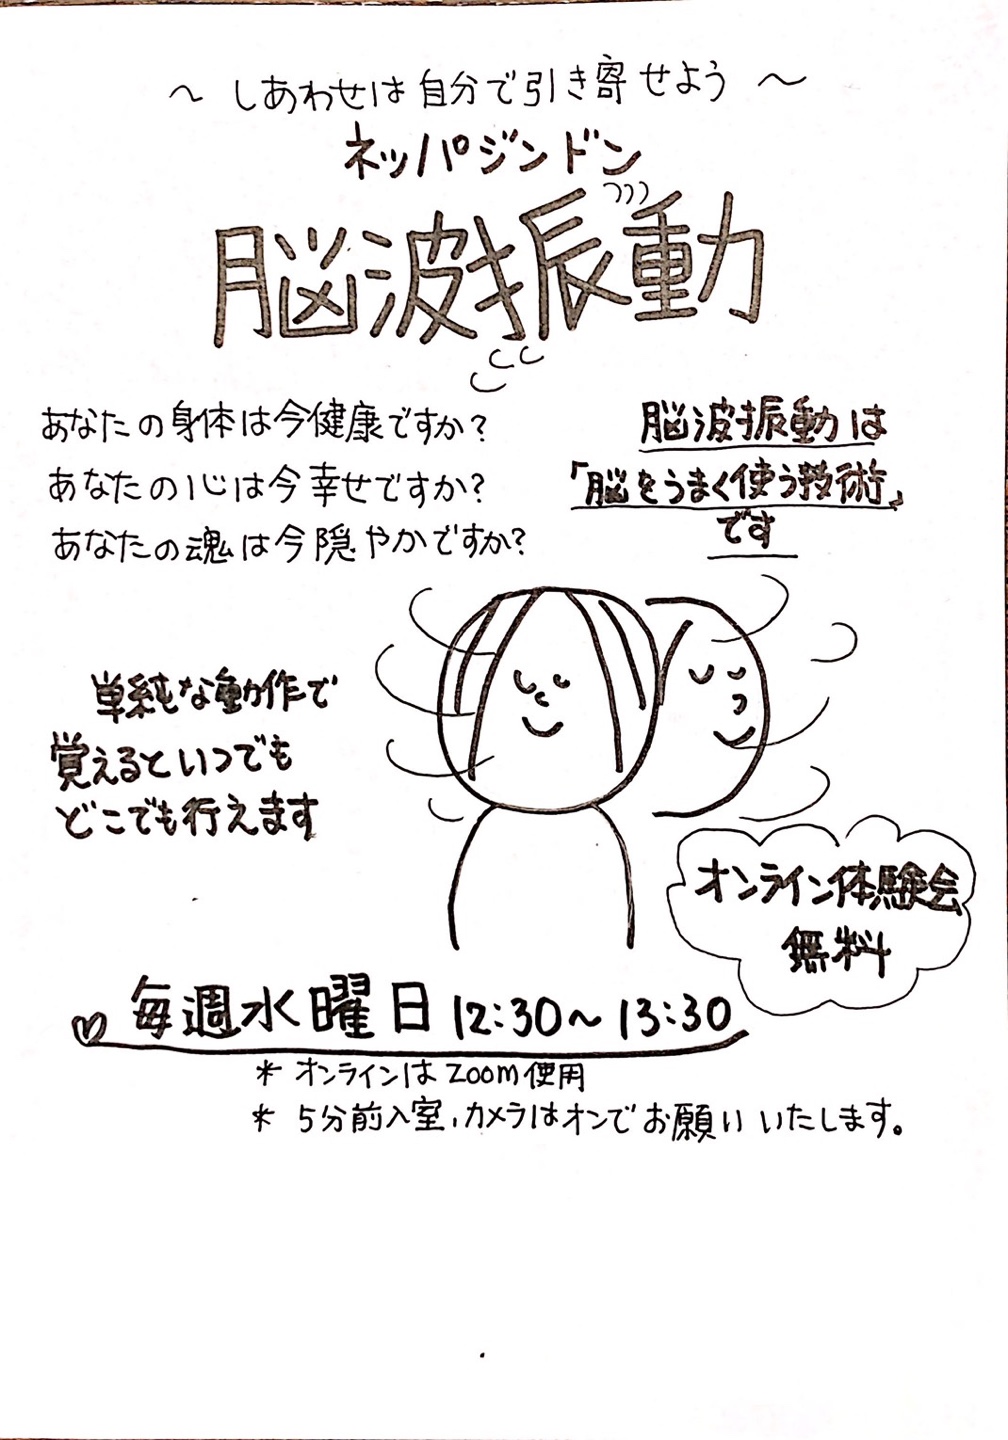 ～ しあわせは自分で引き寄せよう ～
ネッパジンドン
脳波振動
あなたの身体は今健康ですか?
あなたの心は今幸せですか?
あなたの魂は今隠やかですか?
脳波振動は
「脳をうまく使う技術」
です
単純な動作で
覚えるといつでも
どこでも行えます
オンライン体験会
無料
♡ 毎週水曜日 12:30～13:30
* オンラインはzoom使用
* 5分前入室、カメラはオンでお願いいたします。